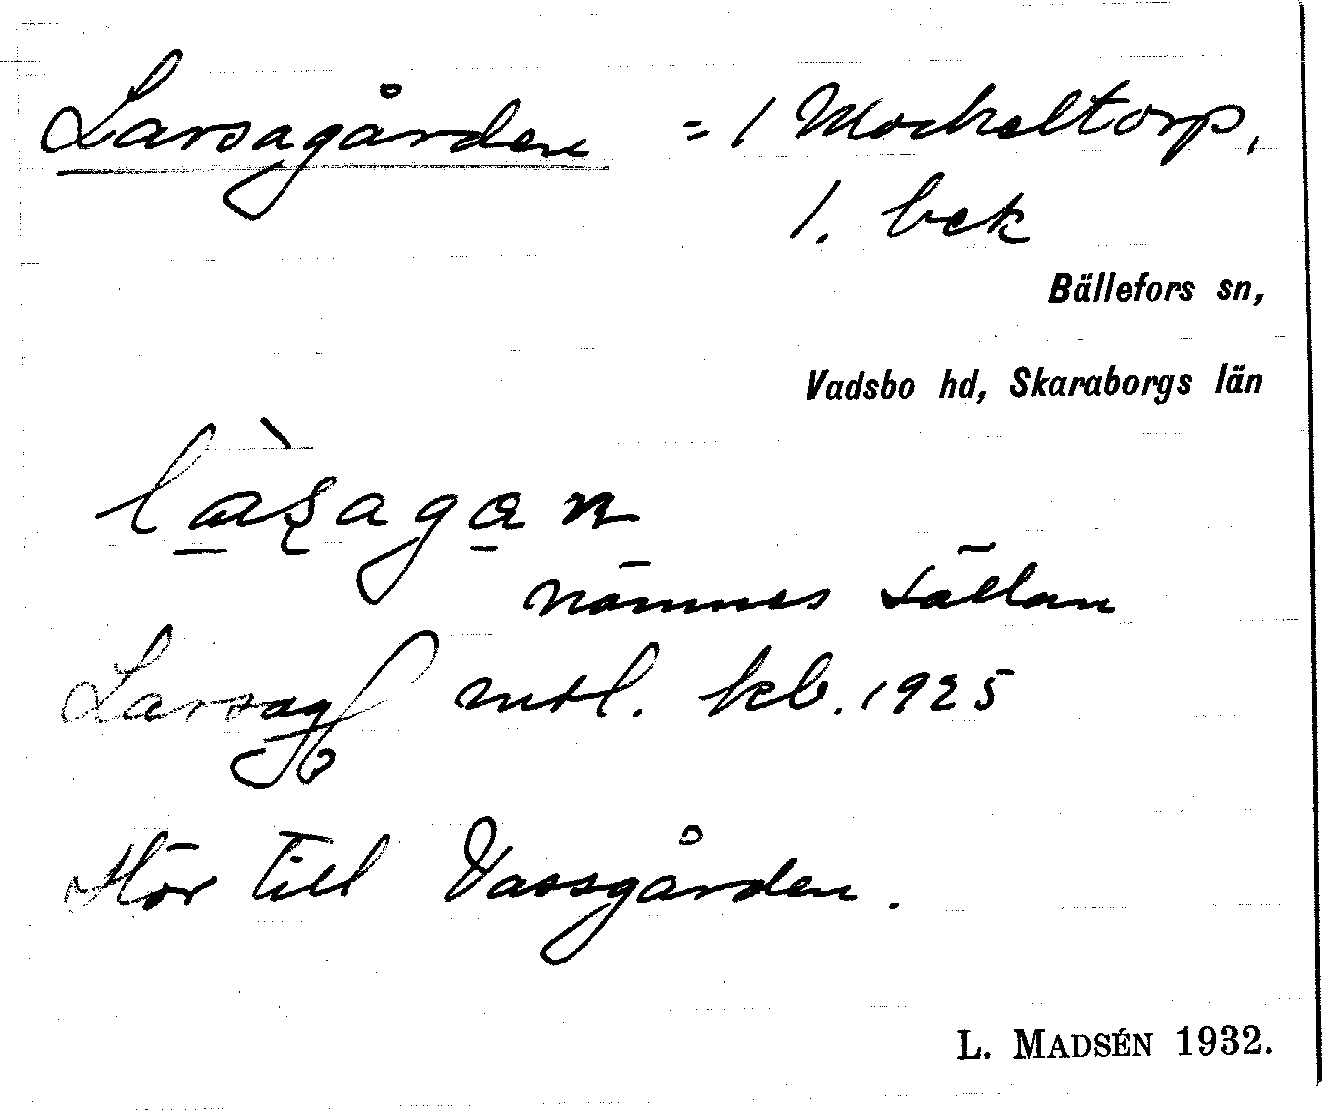 Larsagården = 1 Mockeltorp,
1. bek
Bällefors sn,
Vadsbo hd, Skaraborgs län
nämnes sällan
Larsag mtl. kb. 1925
Hör till Vassgården.
L. MADSÉN 1932.